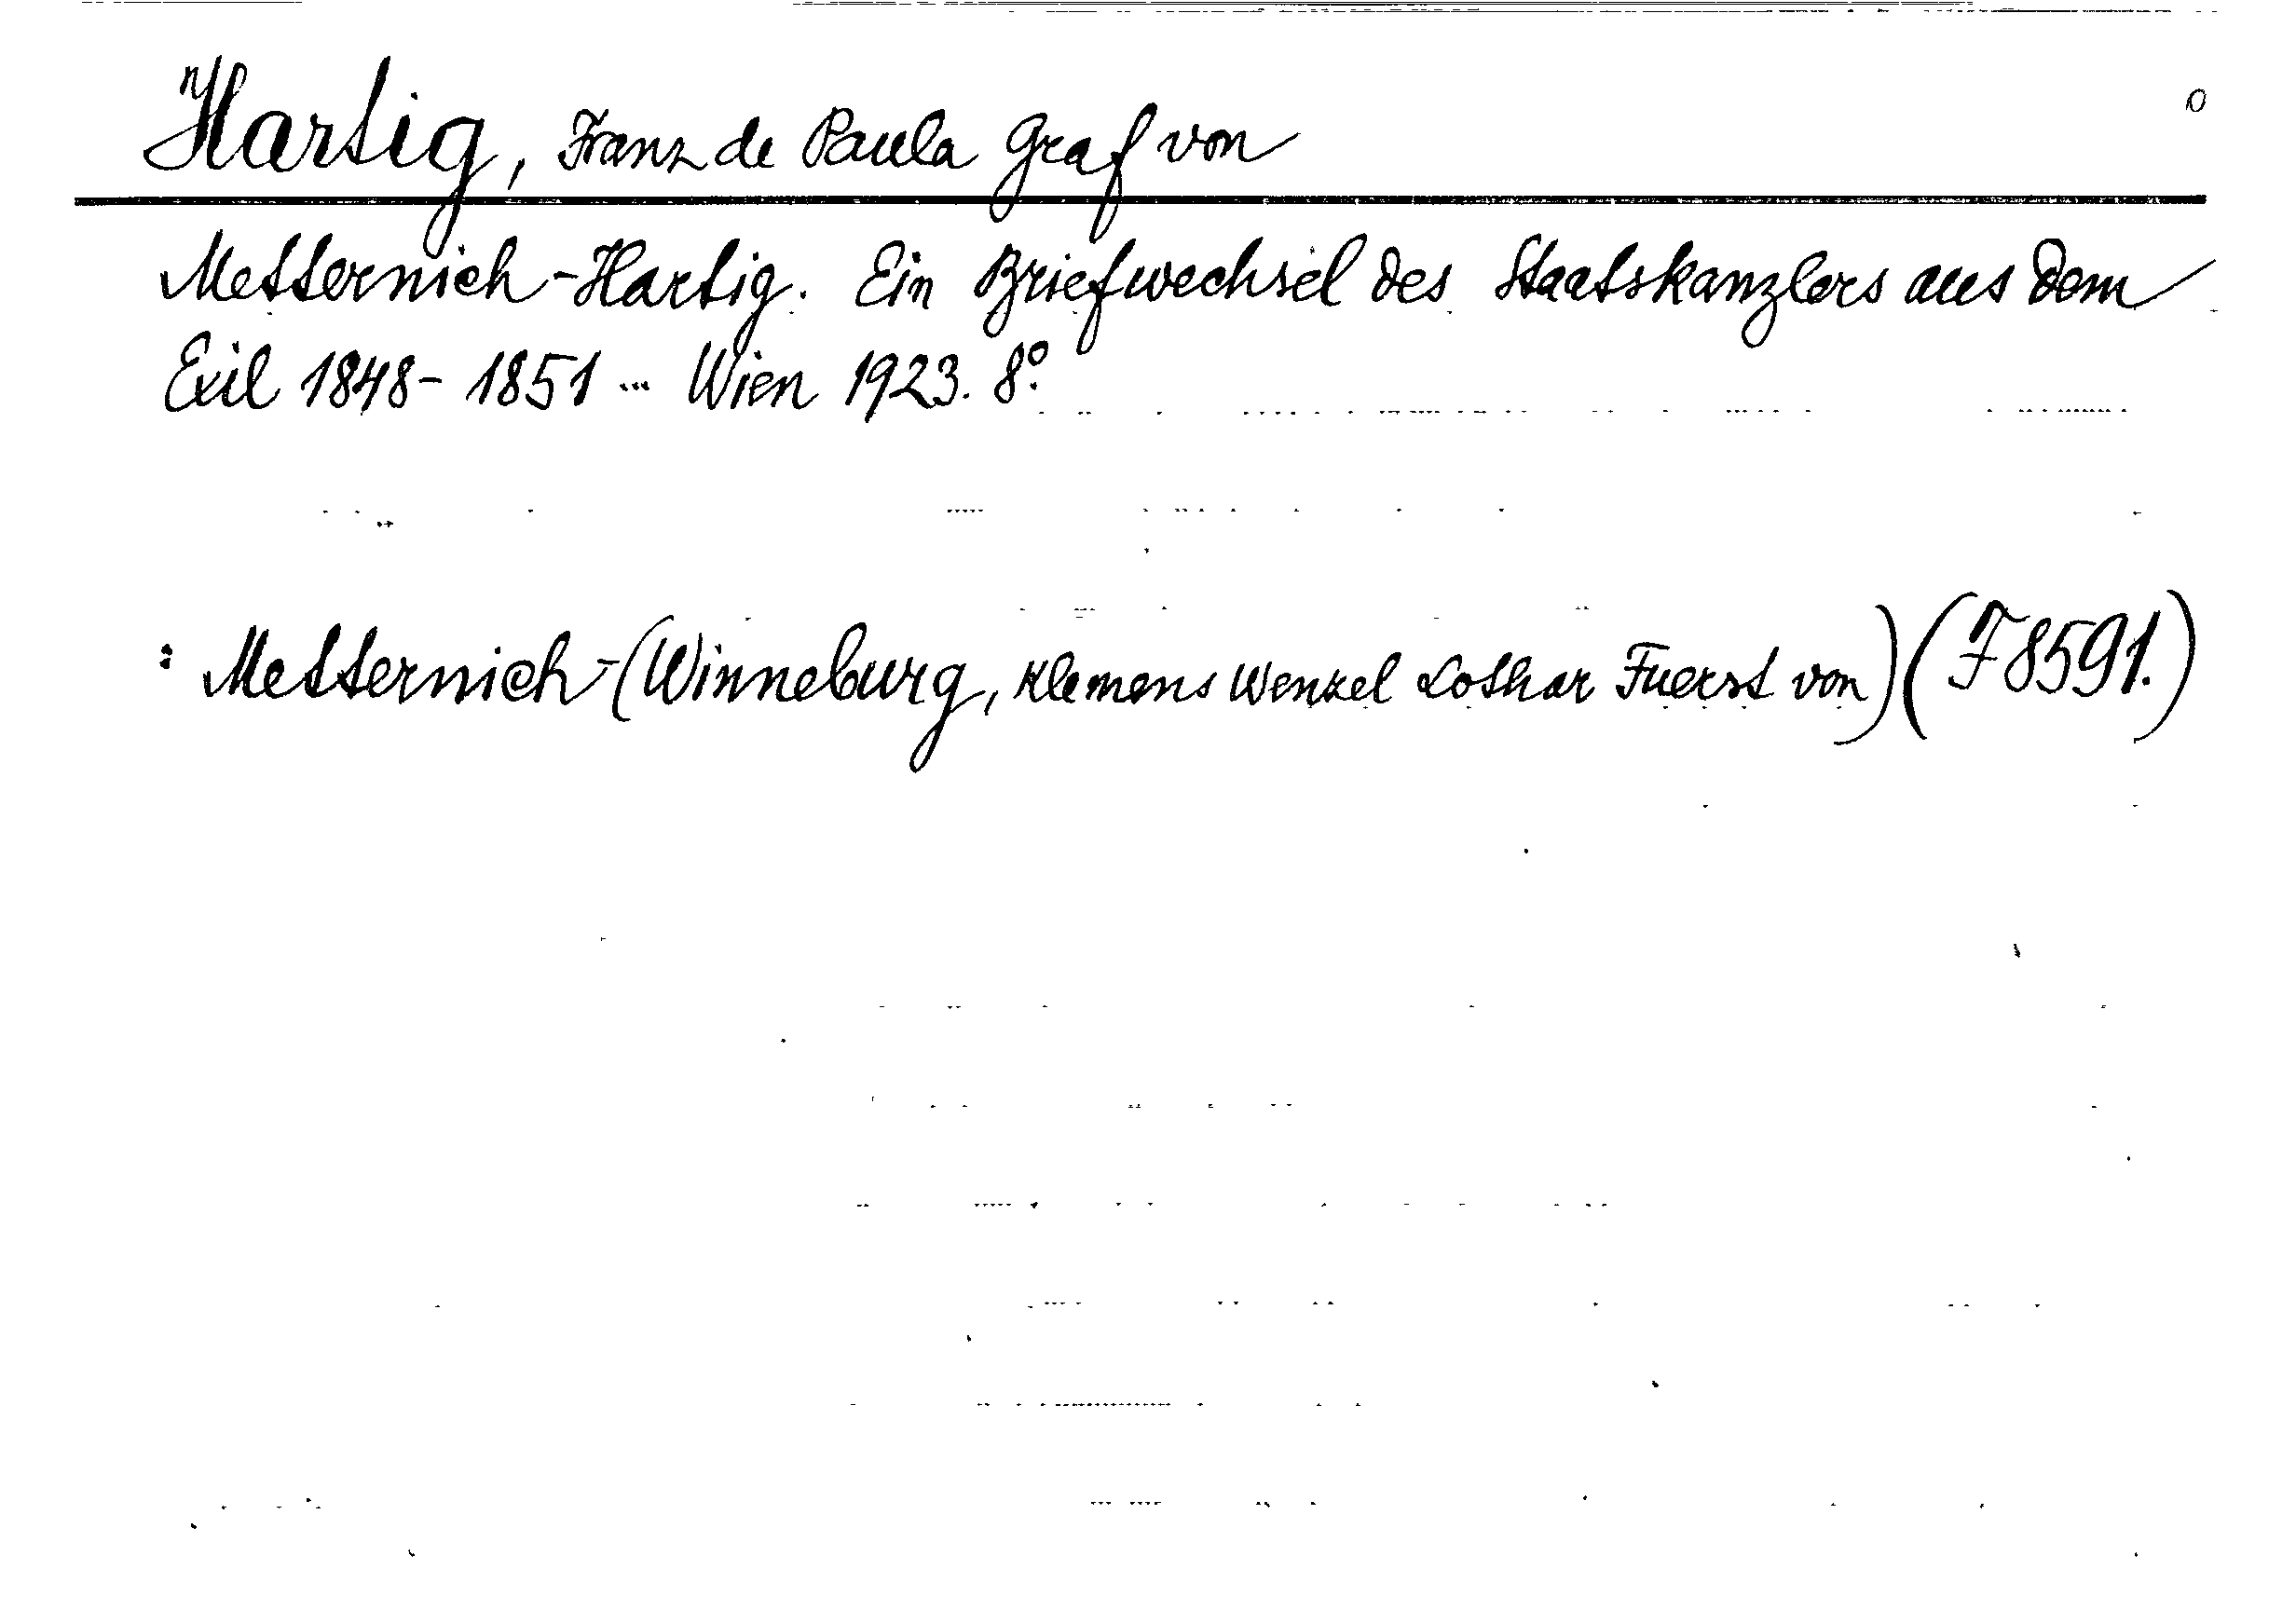 Hartig, Franz de Paula Graf von 0
Metternich-Hartig. Ein Briefwechsel des Staatskanzlers aus dem
Exil 1848-1851 ... Wien 1923. 8º.
: Metternich-(Winneburg, Klemens Wenzel Lothar Fuerst von) (F 8591.)